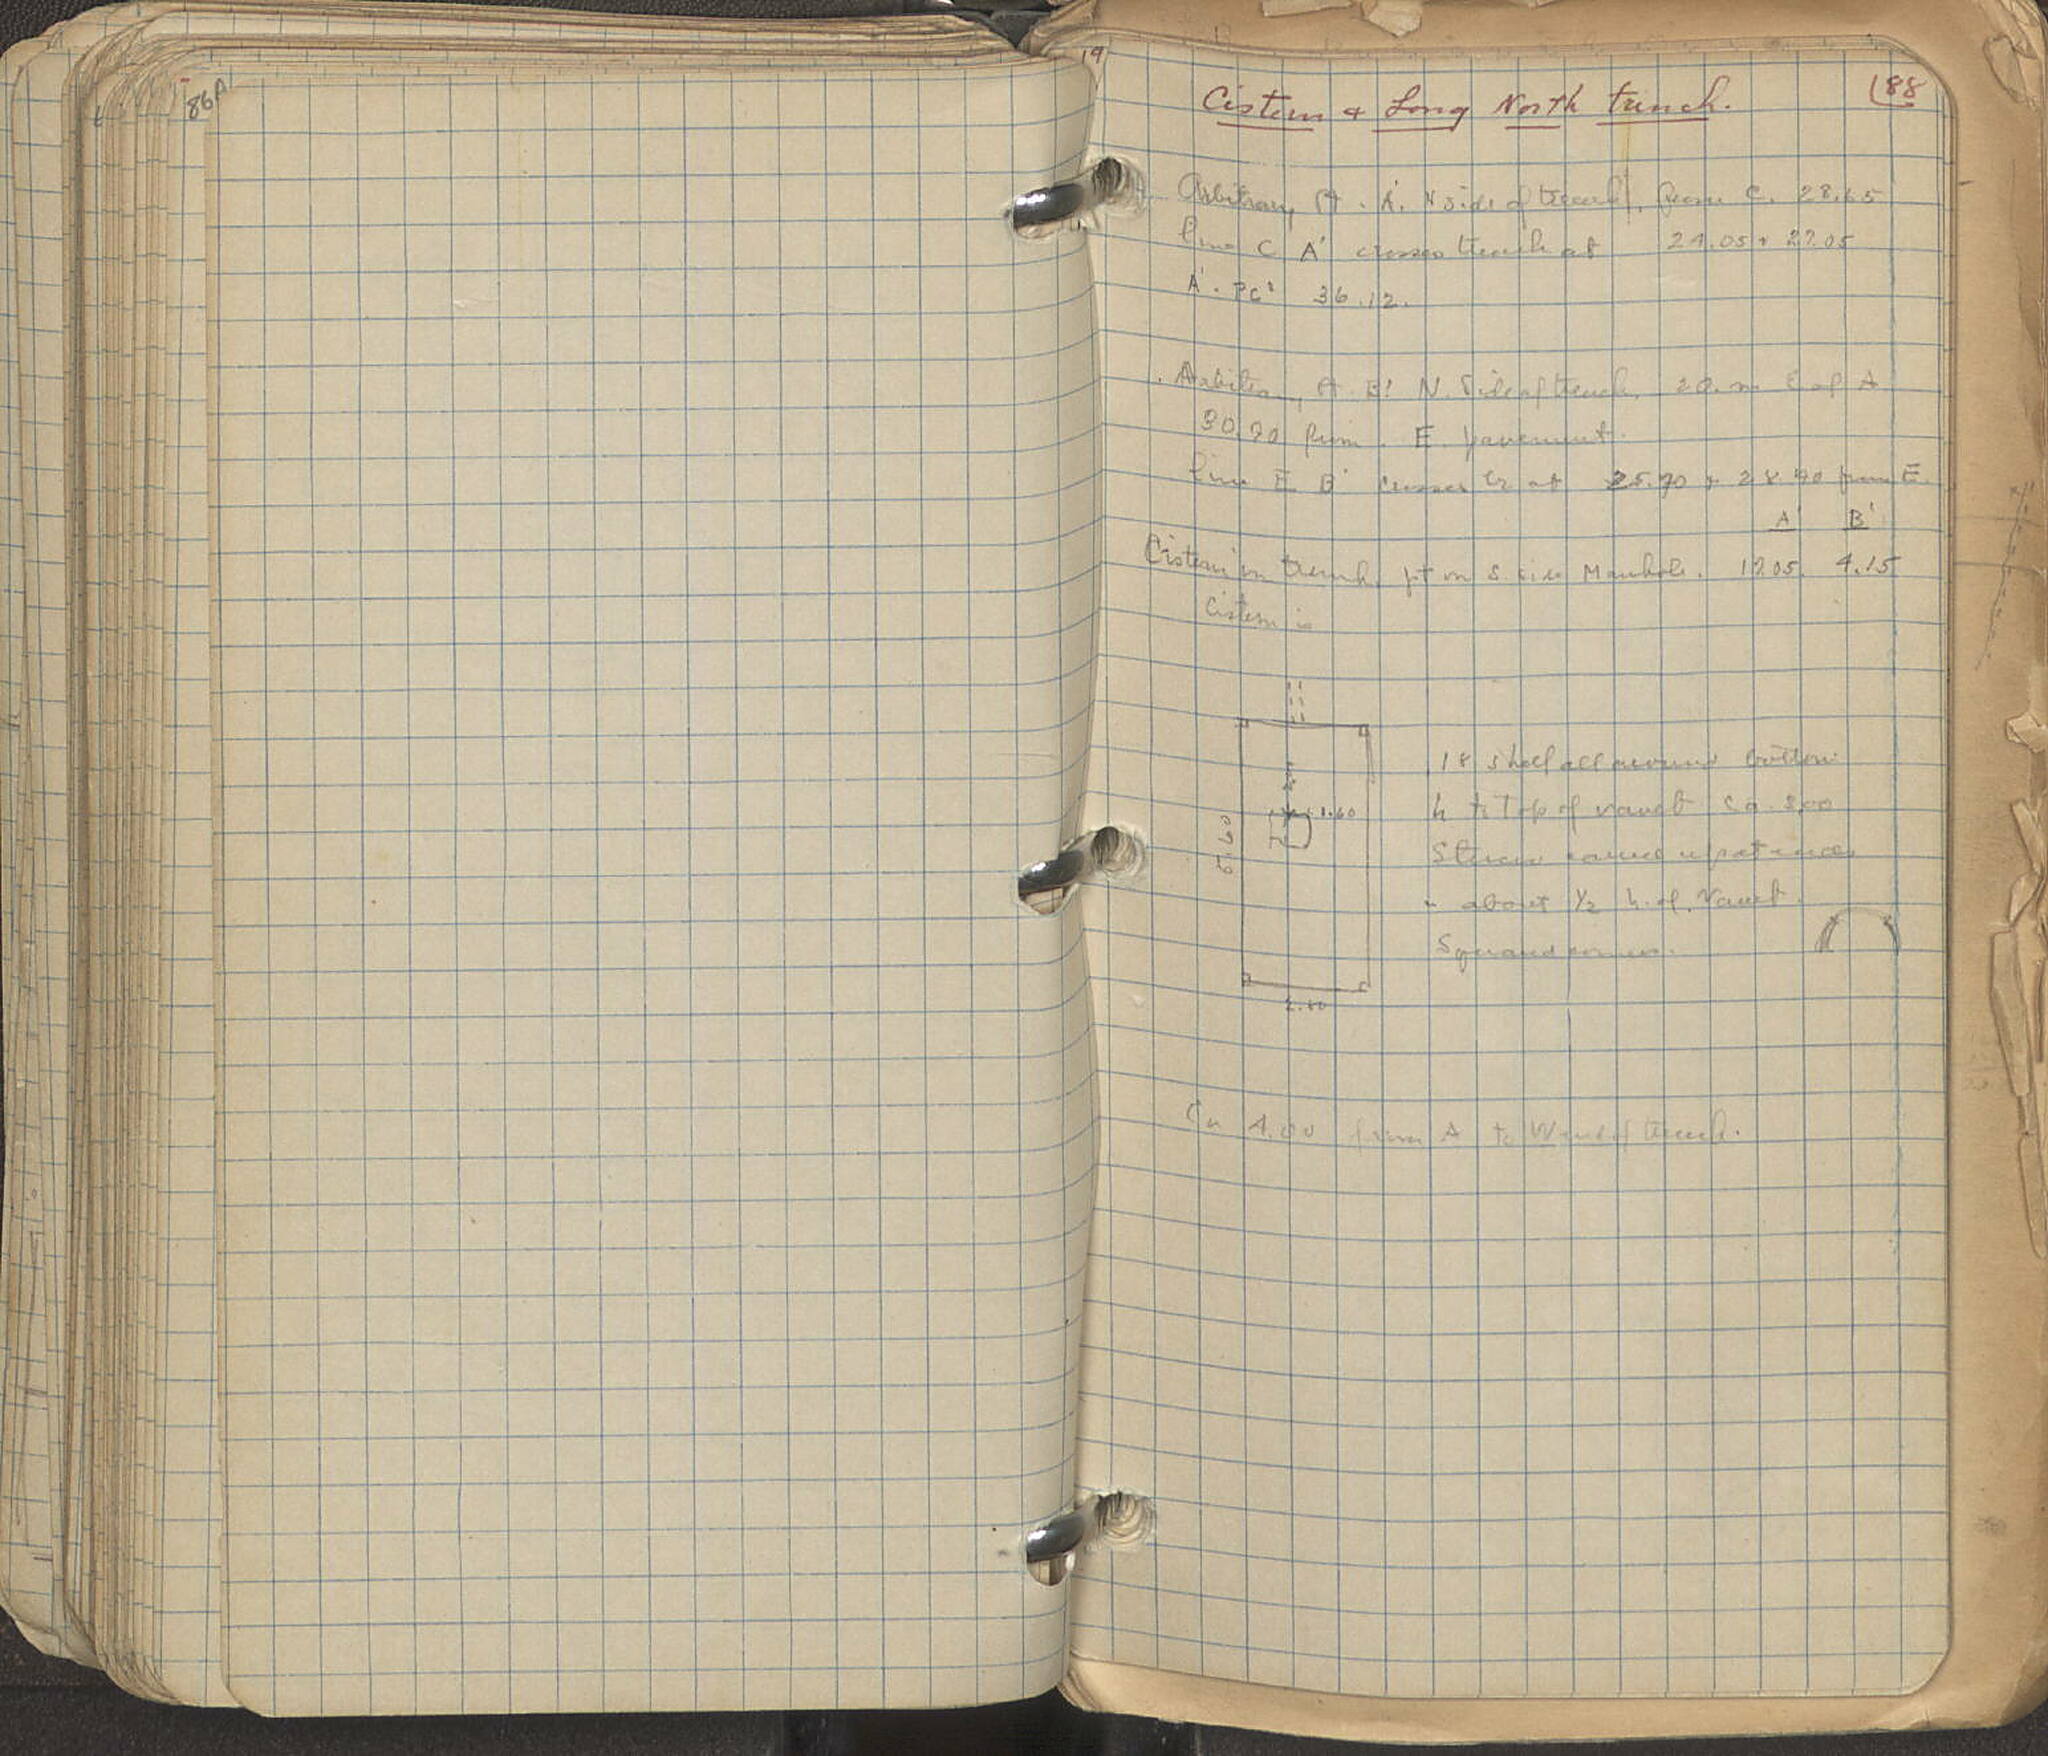 86A
19
88
Cistern & Long North trench.
Arbitrary Pt. A'. N side of trench, from C. 28.65
line C A' crosses trench at 24.05 + 27.05
A'. PC' 36.12.
Arbitrary Pt. B' N. Side of trench, 20. m E of A
30.90 from. E. pavement.
line E B' crosses tr at 25.90 + 28.90 from E.
A' B'
Cistern in trench, pt on S. side Manhole. 17.05. 4.15
Cistern is
1.60
5.60
2.60
18 shelf all around bottom
h to top of vault ca. 3.00
about 1/2 h. of. Vault.
Squared corners.
Ca 4.00 from A to W end of trench.